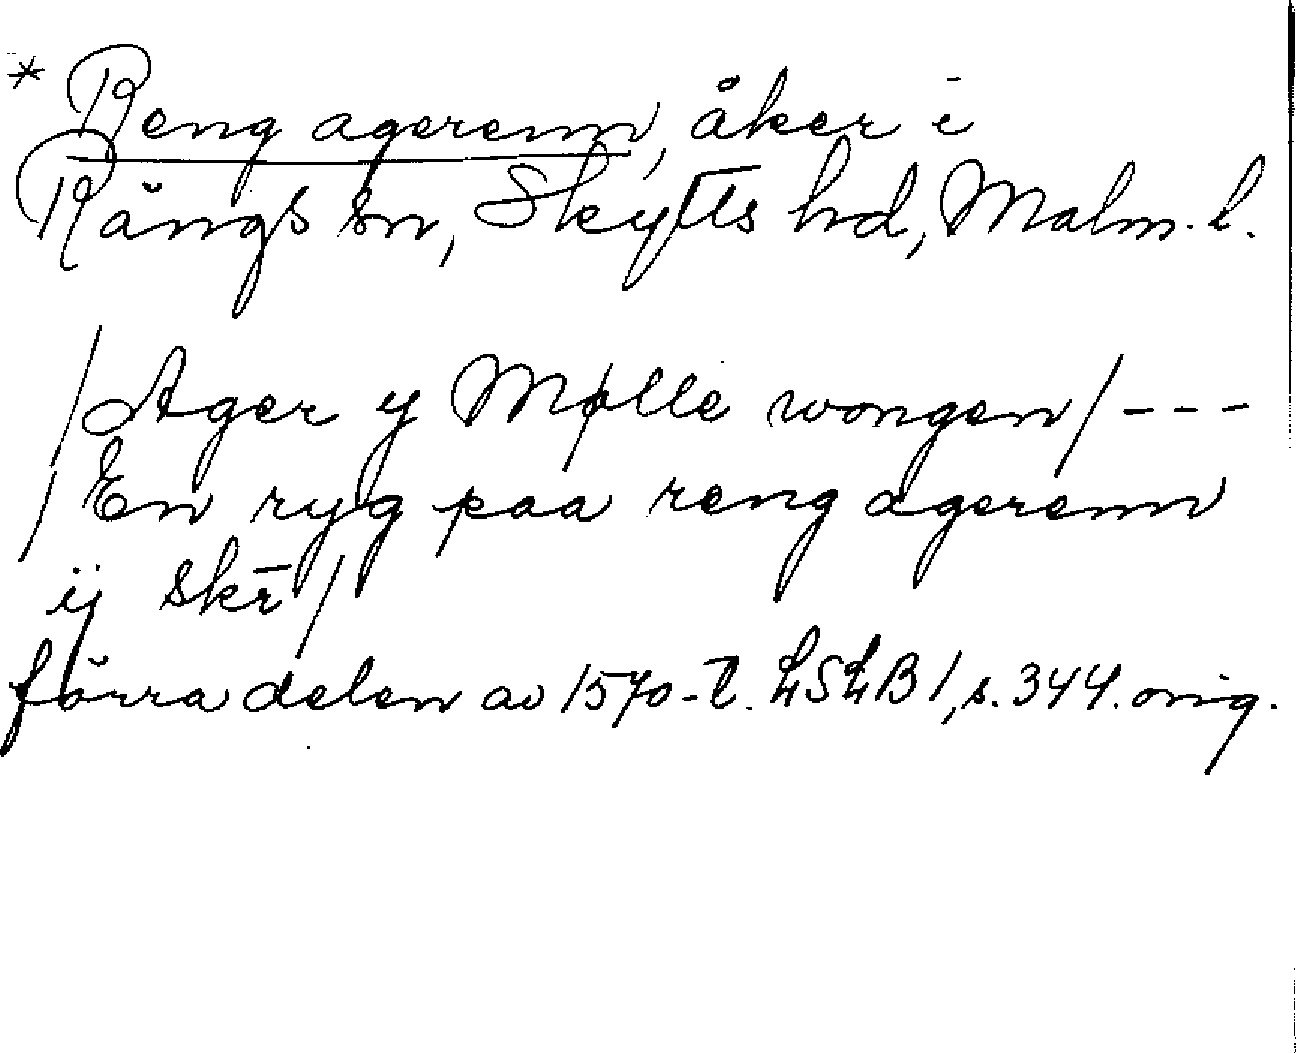 * Reng agerenn, åker i
Rängs sn, Skytts hd, Malm. l.
/Ager y Mølle wongen/ ---
/En ryg paa reng agerenn
ij skr̄/
förra delen av 1570-t. LSLB 1, s. 344. orig.